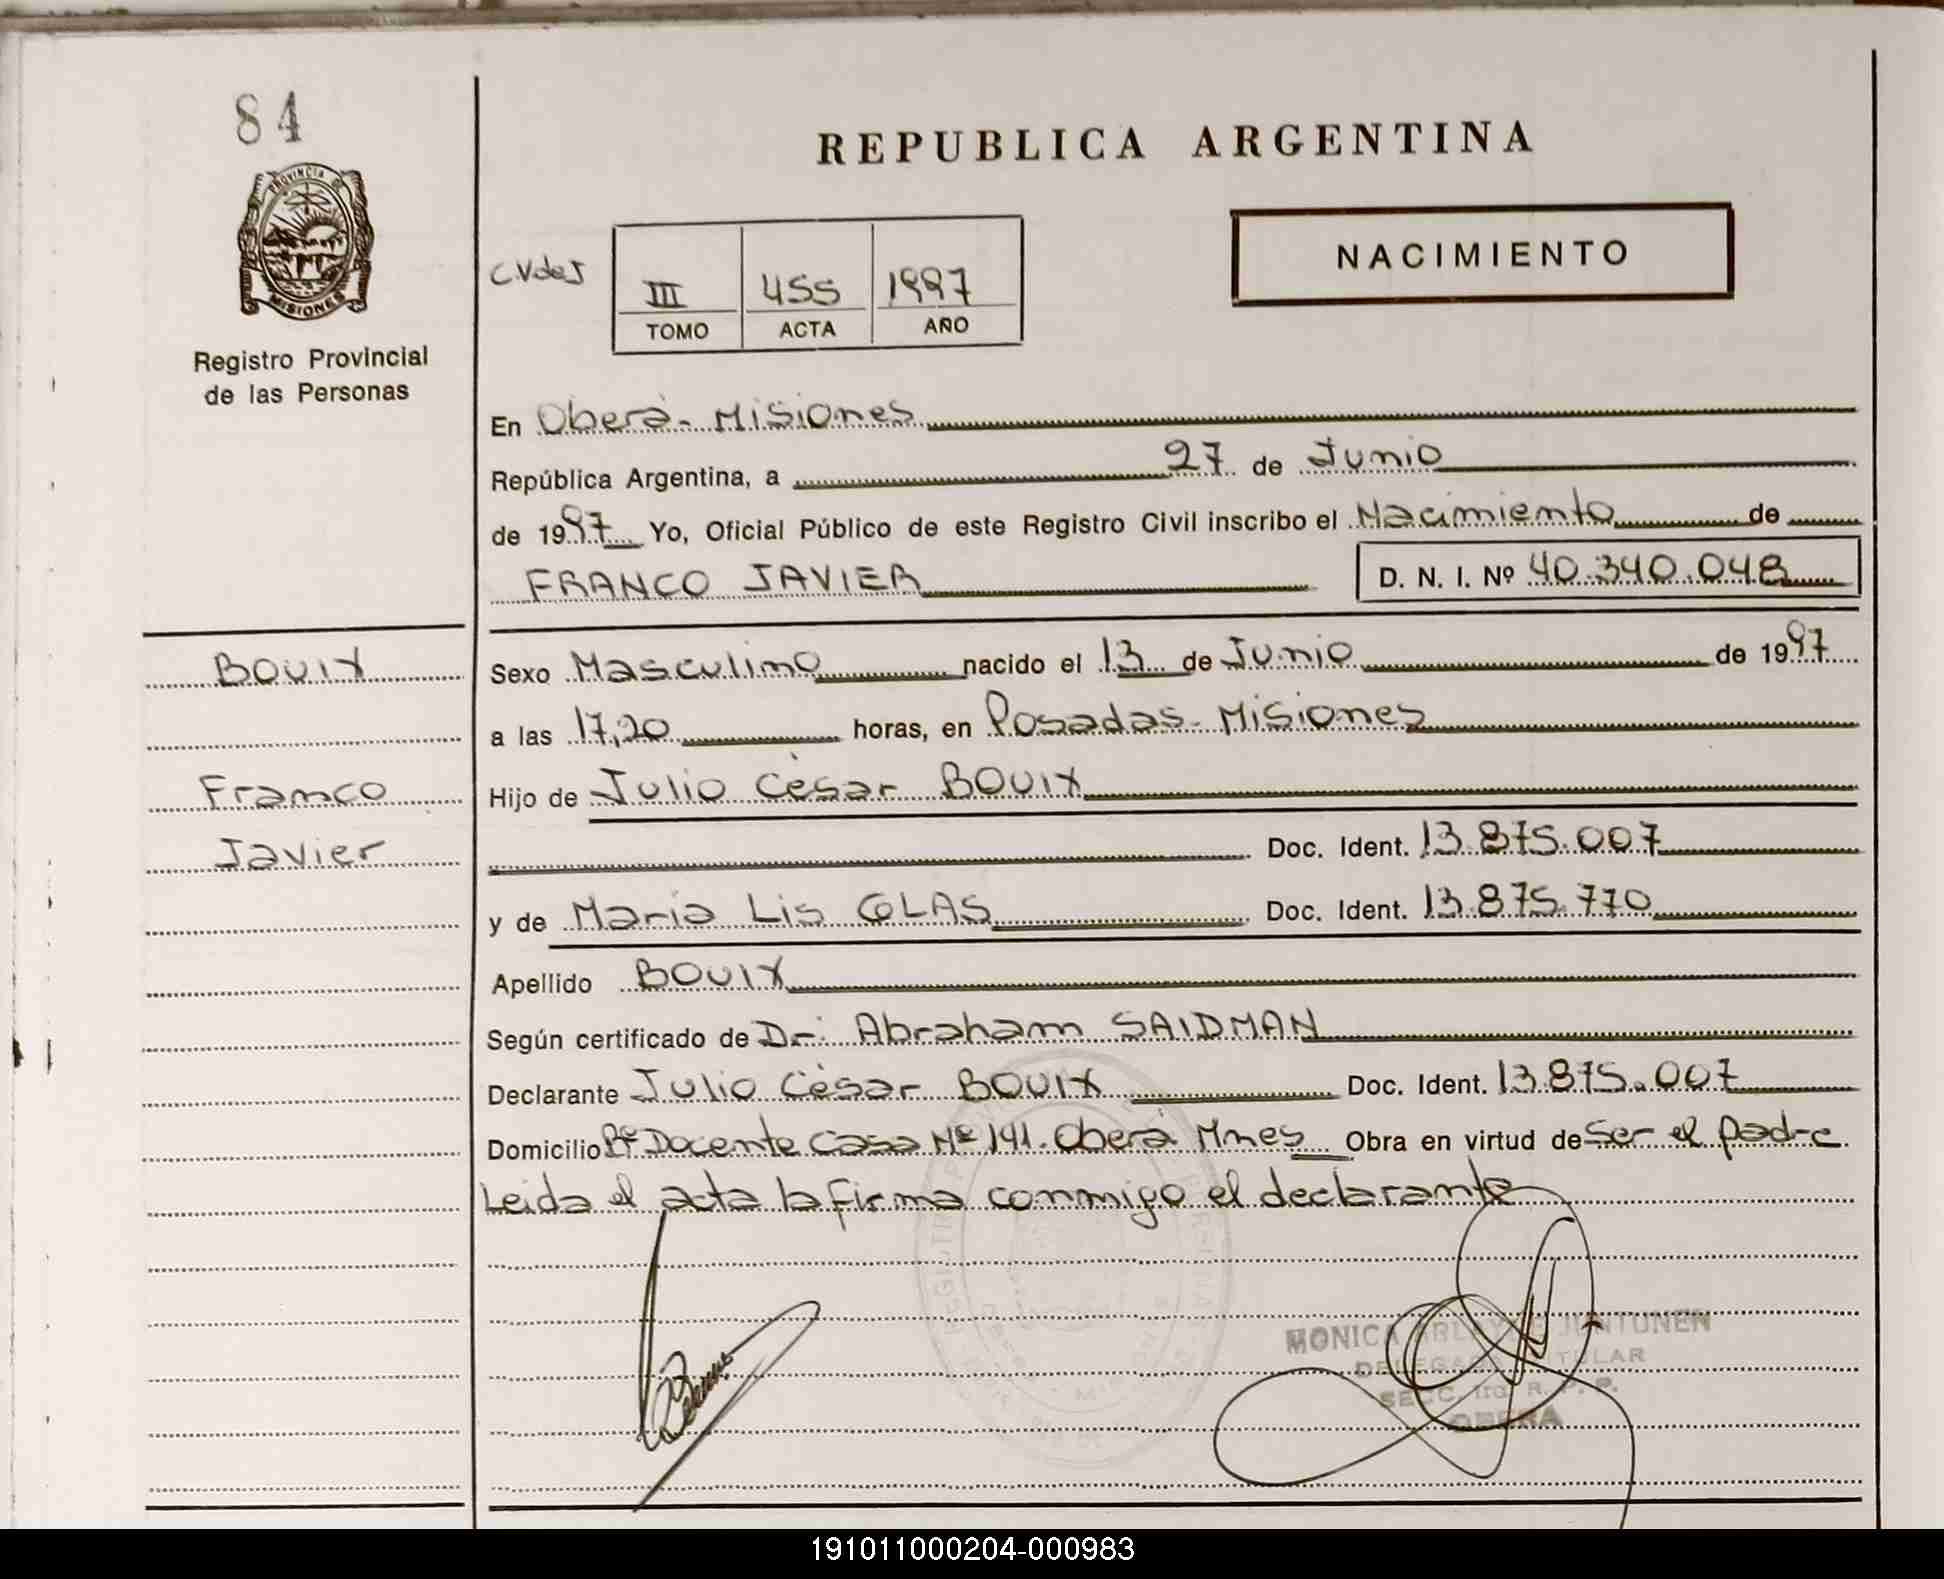 84
REPUBLICA ARGENTINA
PROVINCIA DE
MISIONES
NACIMIENTO
CVdeJ
III 455 1997
TOMO ACTA AÑO
Registro Provincial
de las Personas
En Oberá - Misiones
República Argentina, a 27 de Junio
de 1997 Yo, Oficial Público de este Registro Civil inscribo el Nacimiento de
FRANCO JAVIER D. N. I. Nº 40.340.048
BOUIX
Sexo Masculino nacido el 13 de Junio de 1997
a las 17,20 horas, en Posadas - Misiones
Franco
Hijo de Julio César BOUIX
Javier
Doc. Ident. 13.875.007
y de Maria Lis GLAS Doc. Ident. 13.875.770
Apellido BOUIX
Según certificado de Dr. Abraham SAIDMAN
Declarante Julio César BOUIX Doc. Ident. 13.875.007
Domicilio Bº Docente Casa Nº 141. Oberá Mnes Obra en virtud de Ser el padre
Leida el acta la firma conmigo el declarante
MONICA JUNTUNEN
DELEGADA TITULAR
SECC. R. P. P.
OBERA
191011000204-000983